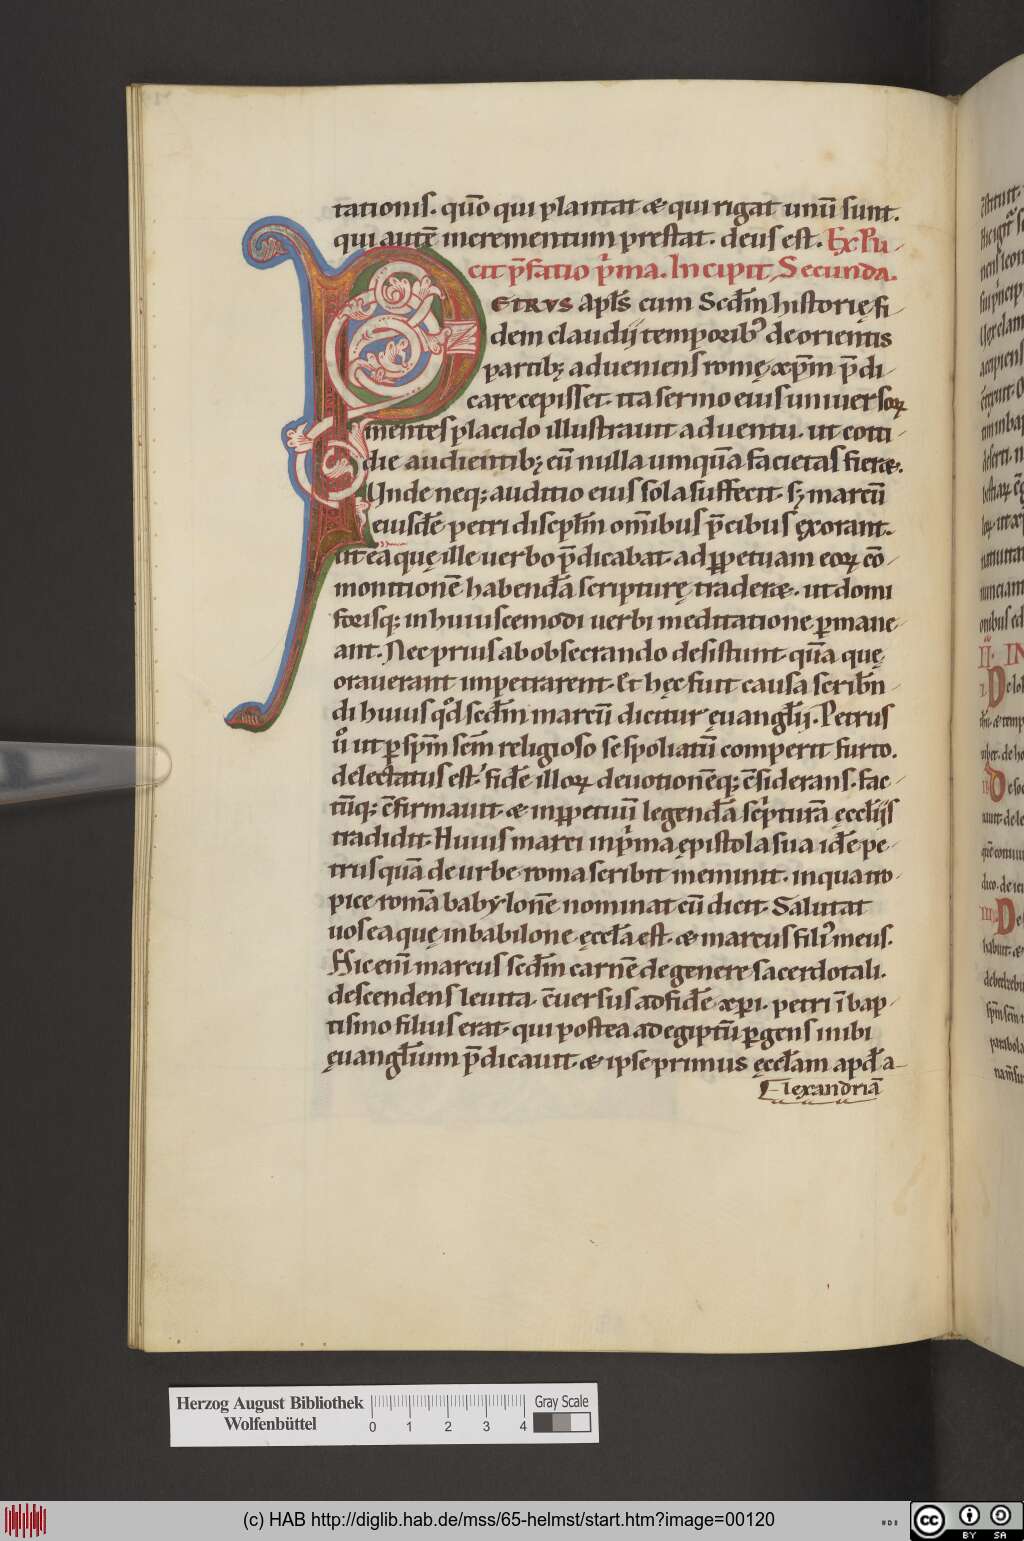 tationis. quō qui plantat & qui rigat unū sunt.
qui autē incrementum prestat. deus est. Expli-
cit p̄fatio p̄ma. Incipit Secunda.
PETRVS apl̄s cum Scd̄m historię fi-
dem claudij temporib' de orientis
partib; adueniens romę. xp̄m p̄di-
care cepisset. ita sermo eius uniuersoꝝ
mentes placido illustrauit aduentu. ut cotti-
die audientib; eū nulla umquā facietas fier&.
Unde neq; auditio eius sola suffecit. s; marcū
eiusdē petri discipl̄m om̄ibus p̄cibus ęxorant.
ut ea quę ille uerbo p̄dicabat. ad ꝑpetuam eoꝝ cō-
monitionē habendā scripturę trader&. ut domi
forisq; in huiuscemodi uerbi meditatione ꝑmane-
ant. Nec prius ab obsecrando desistunt. quā quę
orauerant impetrarent. Et hęc fuit causa scribn̄-
di huius qd̄ scd̄m marcū dicitur ęuangl̄ij. Petrus
ů ut ꝑ sp̄m scm̄ religioso se spoliatū comperit furto.
delectatus est. fidē illoꝝ deuotionēq; c̄siderans. fac-
tūq; c̄firmauit. & inꝑpetuū legendā scp̄turā ęccl̄ijs
tradidit. Huius marci in p̄ma ępistola sua idē pe-
trus quā de urbe roma scribit meminit. in qua tro-
pice romā babylonē nominat cū dicit. Salutat
uos ea quę in babilone ęccl̄a est. & marcus fili' meus.
Hic eni marcus scd̄m carnē de genere sacerdotali.
descendens leuita. c̄uersus ad fidē xp̄i. petri ī bap-
tismo filius erat. qui postea ad egiptū ꝑgens inibi
ęuangl̄ium p̄dicauit. & ipse primus ęccl̄am apd̄ a-
lexandriā
II. IN
Herzog August Bibliothek
Wolfenbüttel
0 1 2 3 4
Gray Scale
(c) HAB http://diglib.hab.de/mss/65-helmst/start.htm?image=00120
cc BY SA